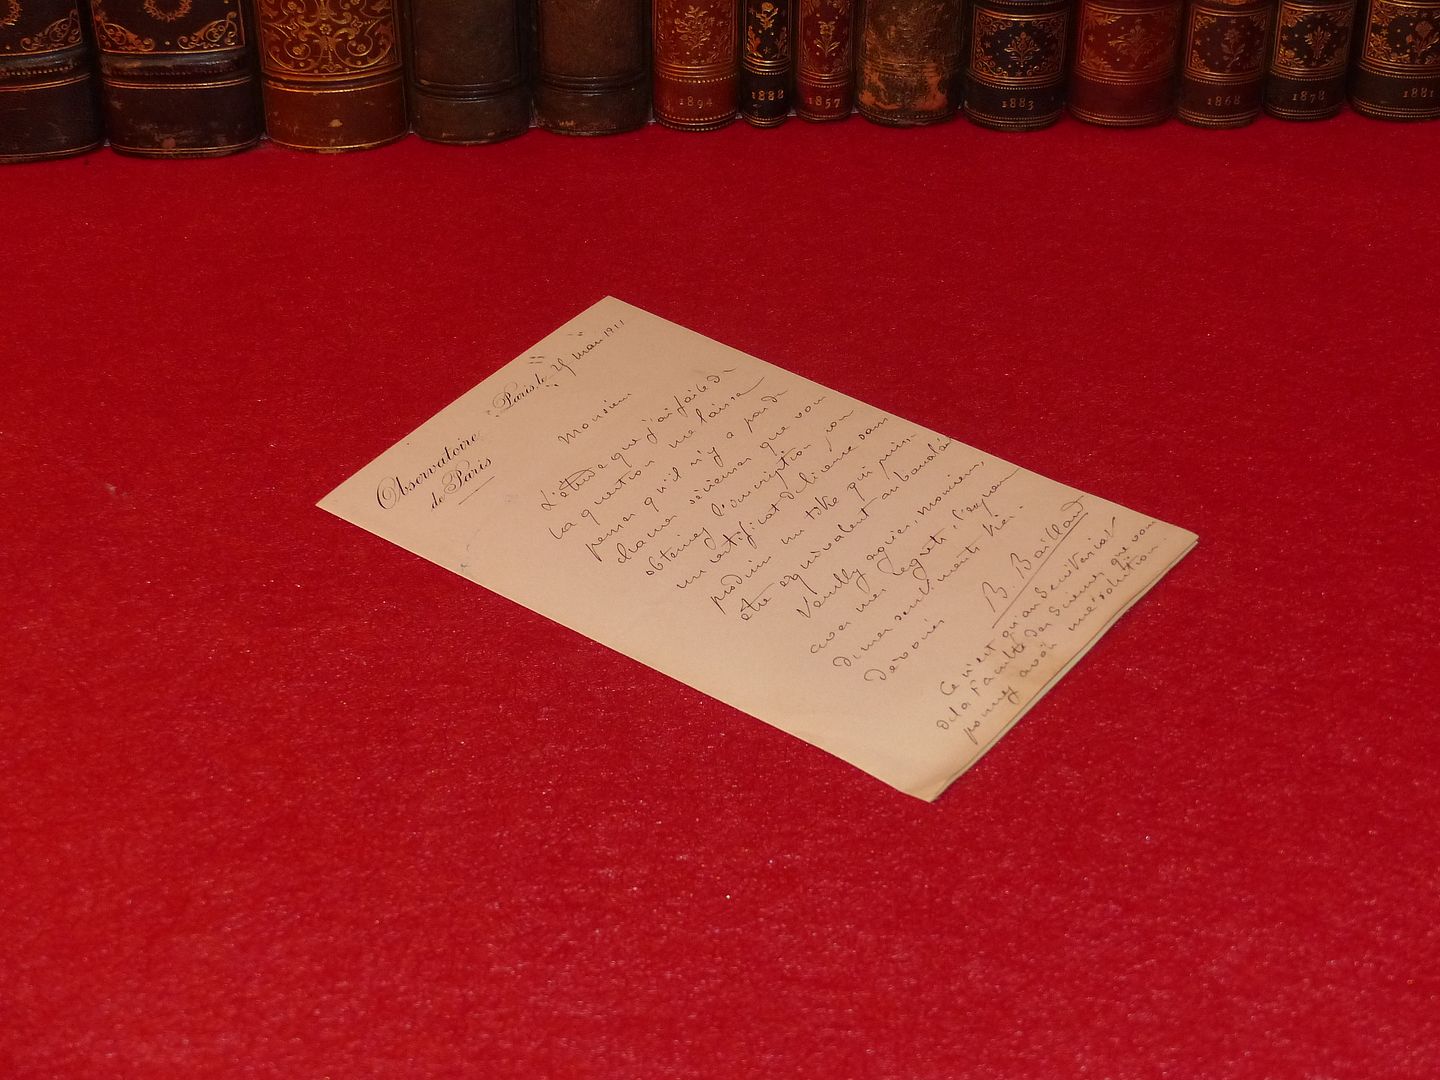 1894
1888
1857
1883
1868
1878
1881
Observatoire
de Paris
Paris, le 25 mai 1911
Monsieur
L'étude que j'ai faite de
la question me laisse
penser qu'il n'y a pas de
chances sérieuses que vous
obteniez l'inscription
un certificat de licence sans
produire un titre qui puisse
être équivalent au baccalauréat
Veuillez agréer, Monsieur,
avec mes regrets, l'expression
de mes sentiments bien
dévoués
B. Baillaud
Ce n'est qu'au Secrétariat
de la Faculté des Sciences que vous
pourrez avoir une solution.